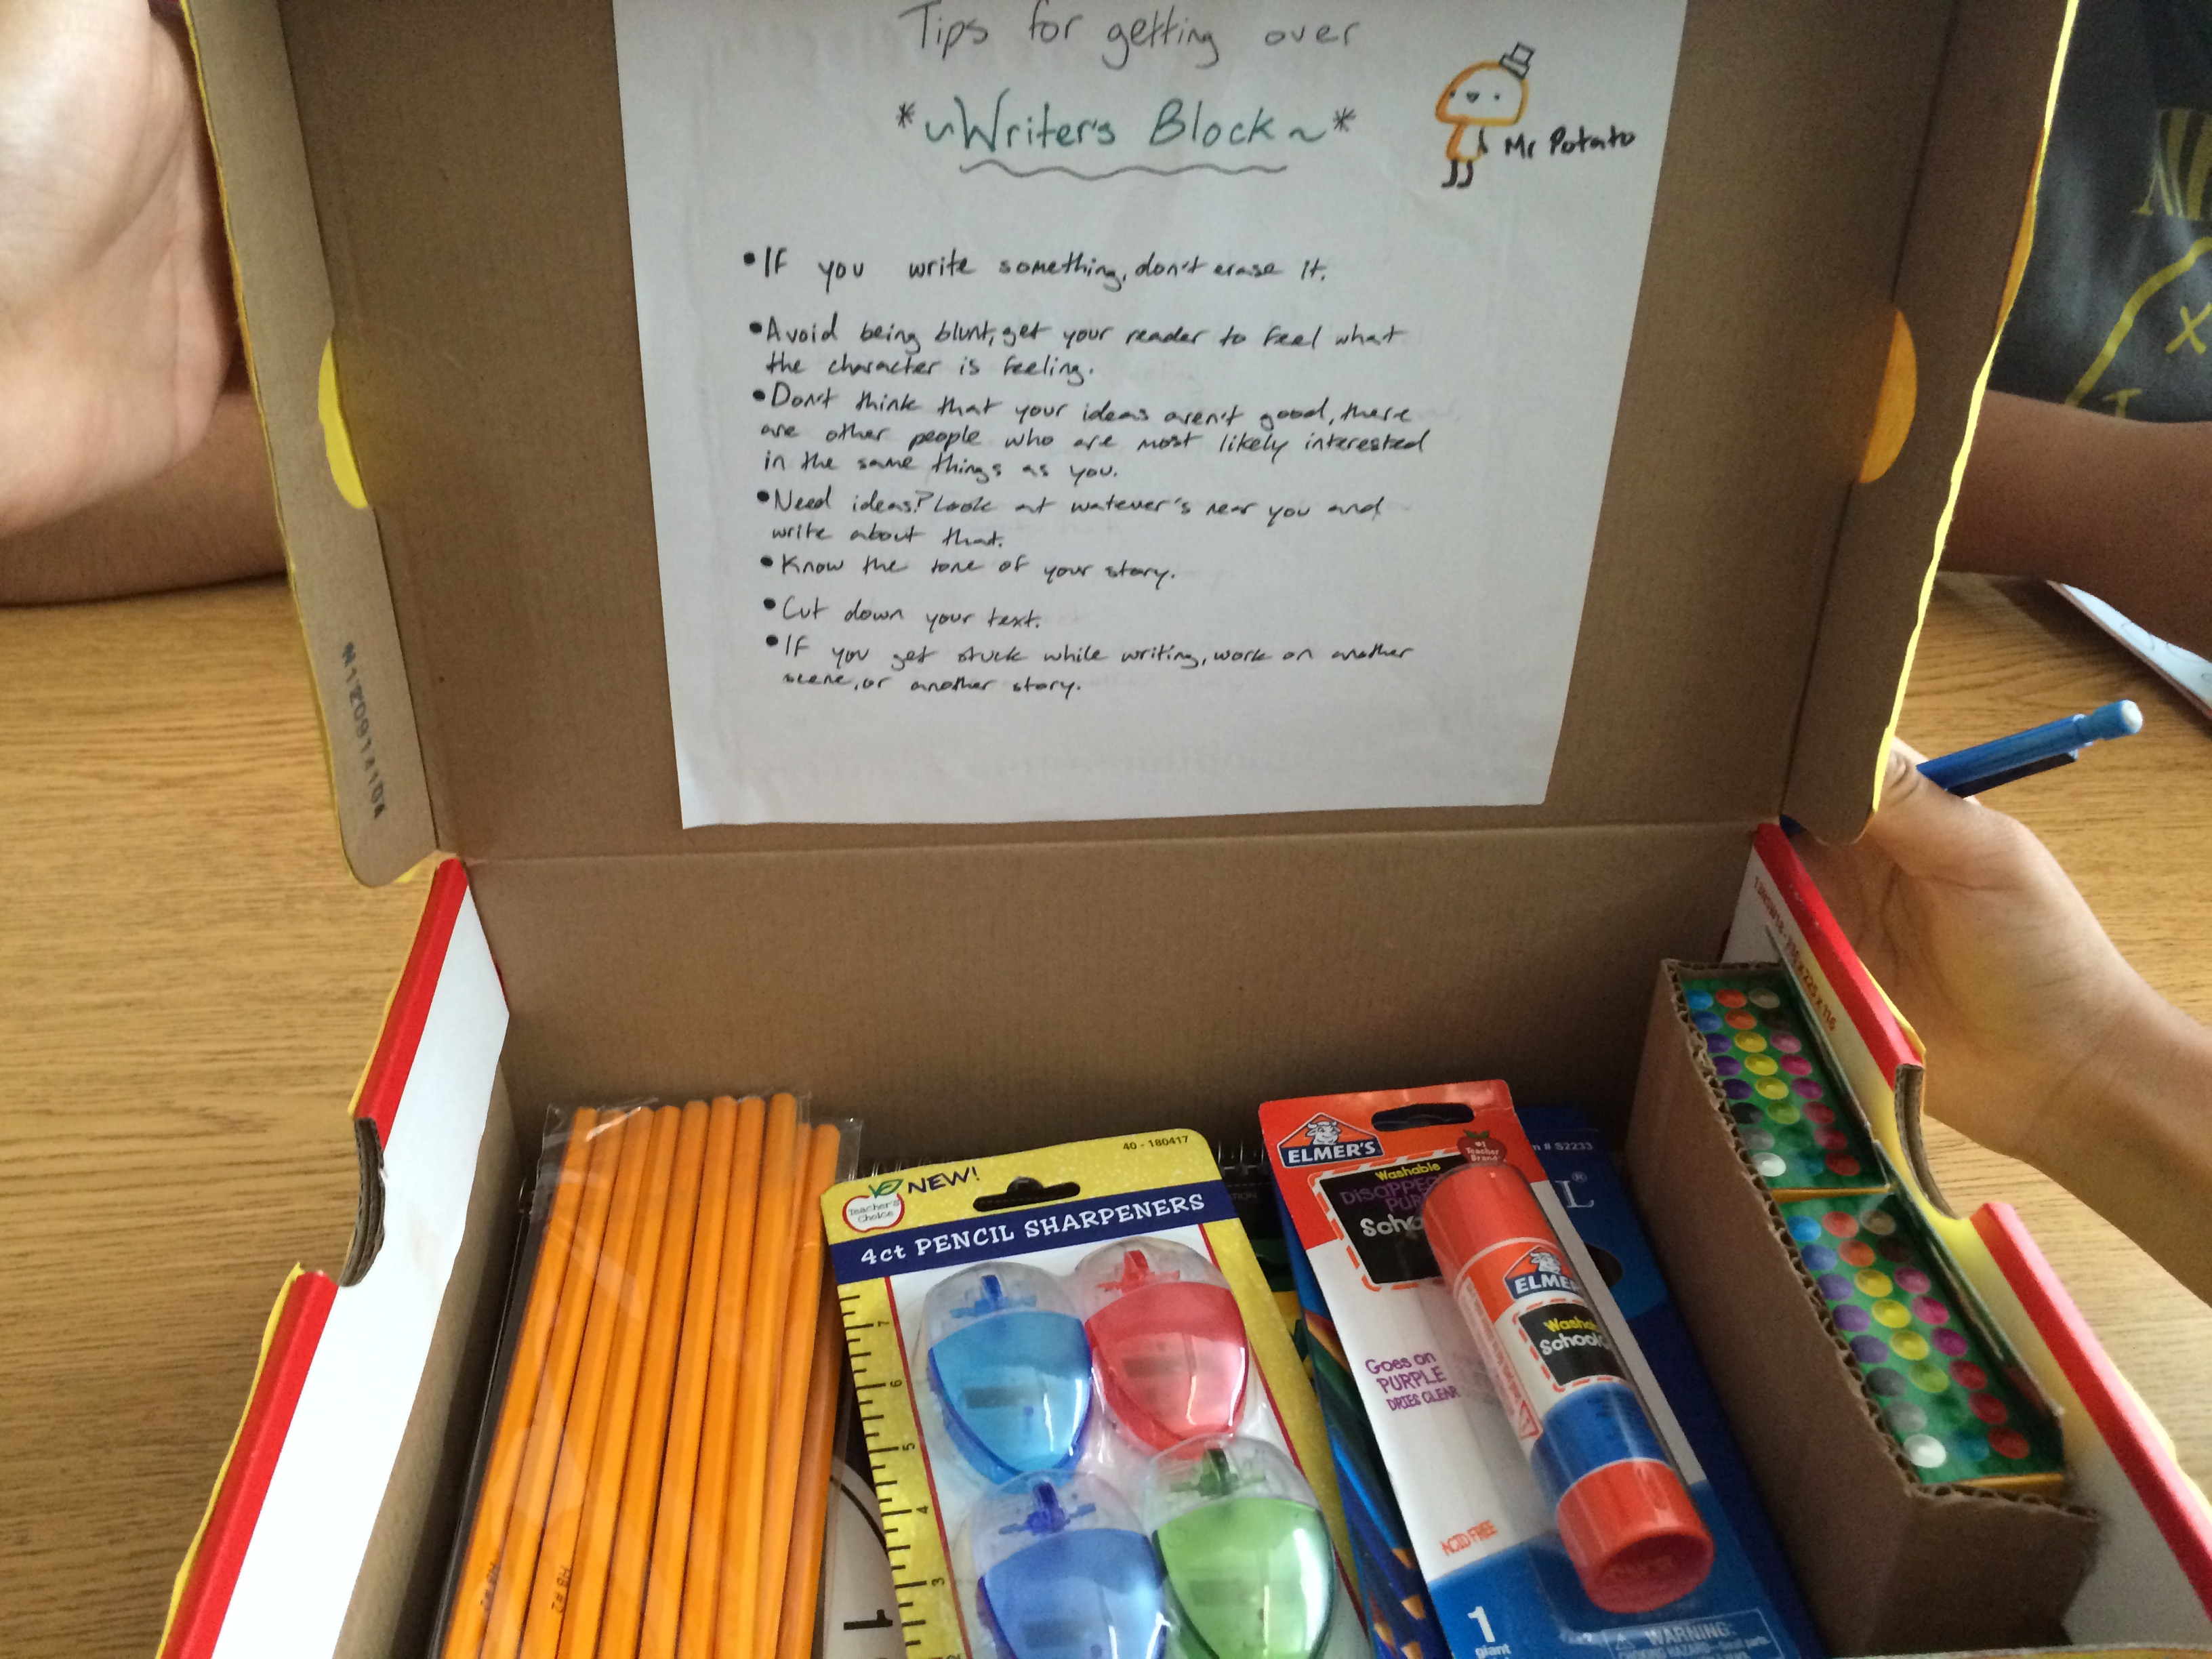 Tips for getting over
*~Writer's Block~*
Mr Potato
•If you write something, don't erase it.
•Avoid being blunt, get your reader to feel what
the character is feeling.
•Don't think that your ideas aren't good, there
are other people who are most likely interested
in the same things as you.
•Need ideas? Look at watever's near you and
write about that.
•Know the tone of your story.
•Cut down your text.
•If you get stuck while writing, work on another
scene, or another story.
40 - 180417
Teacher's
Choice
NEW!
4ct PENCIL SHARPENERS
7
6
5
4
3
2
1
HB #2
ELMER'S
#1
Teacher
Brand
Washable
School
Goes on
PURPLE
DRIES CLEAR
ACID FREE
1
giant
WARNING:
ELMER
Washable
School
# S2233
L®